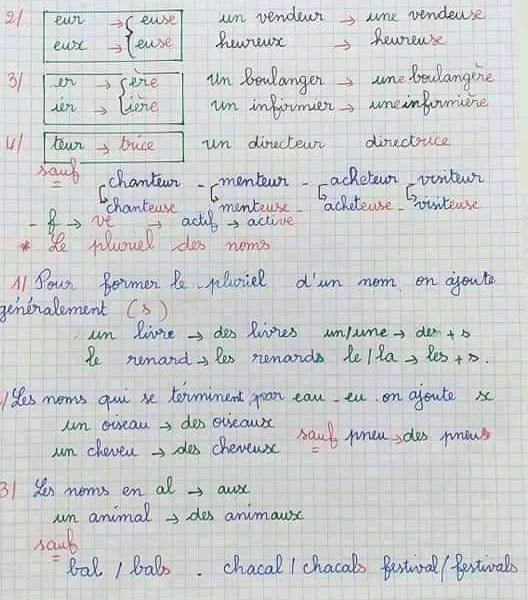 2/ eur → euse un vendeur → une vendeuse
eux → euse heureux → heureuse
3/ er → ère un boulanger → une boulangère
ier → ière un infirmier → une infirmière
4/ teur → trice un directeur directrice
sauf chanteur - menteur - acheteur - visiteur
chanteuse - menteuse - acheteuse - visiteuse
- f → ve → actif → active
* Le pluriel des noms
1/ Pour former le pluriel d'un nom on ajoute
généralement (s)
un livre → des livres un/une → des + s
le renard → les renards le/la → les + s.
/ Les noms qui se términent par eau - eu on ajoute x
un oiseau → des oiseaux sauf pneu → des pneus
un cheveu → des cheveux
3/ Les noms en al → aux
un animal → des animaux
sauf
bal / bals . chacal / chacals festival / festivals